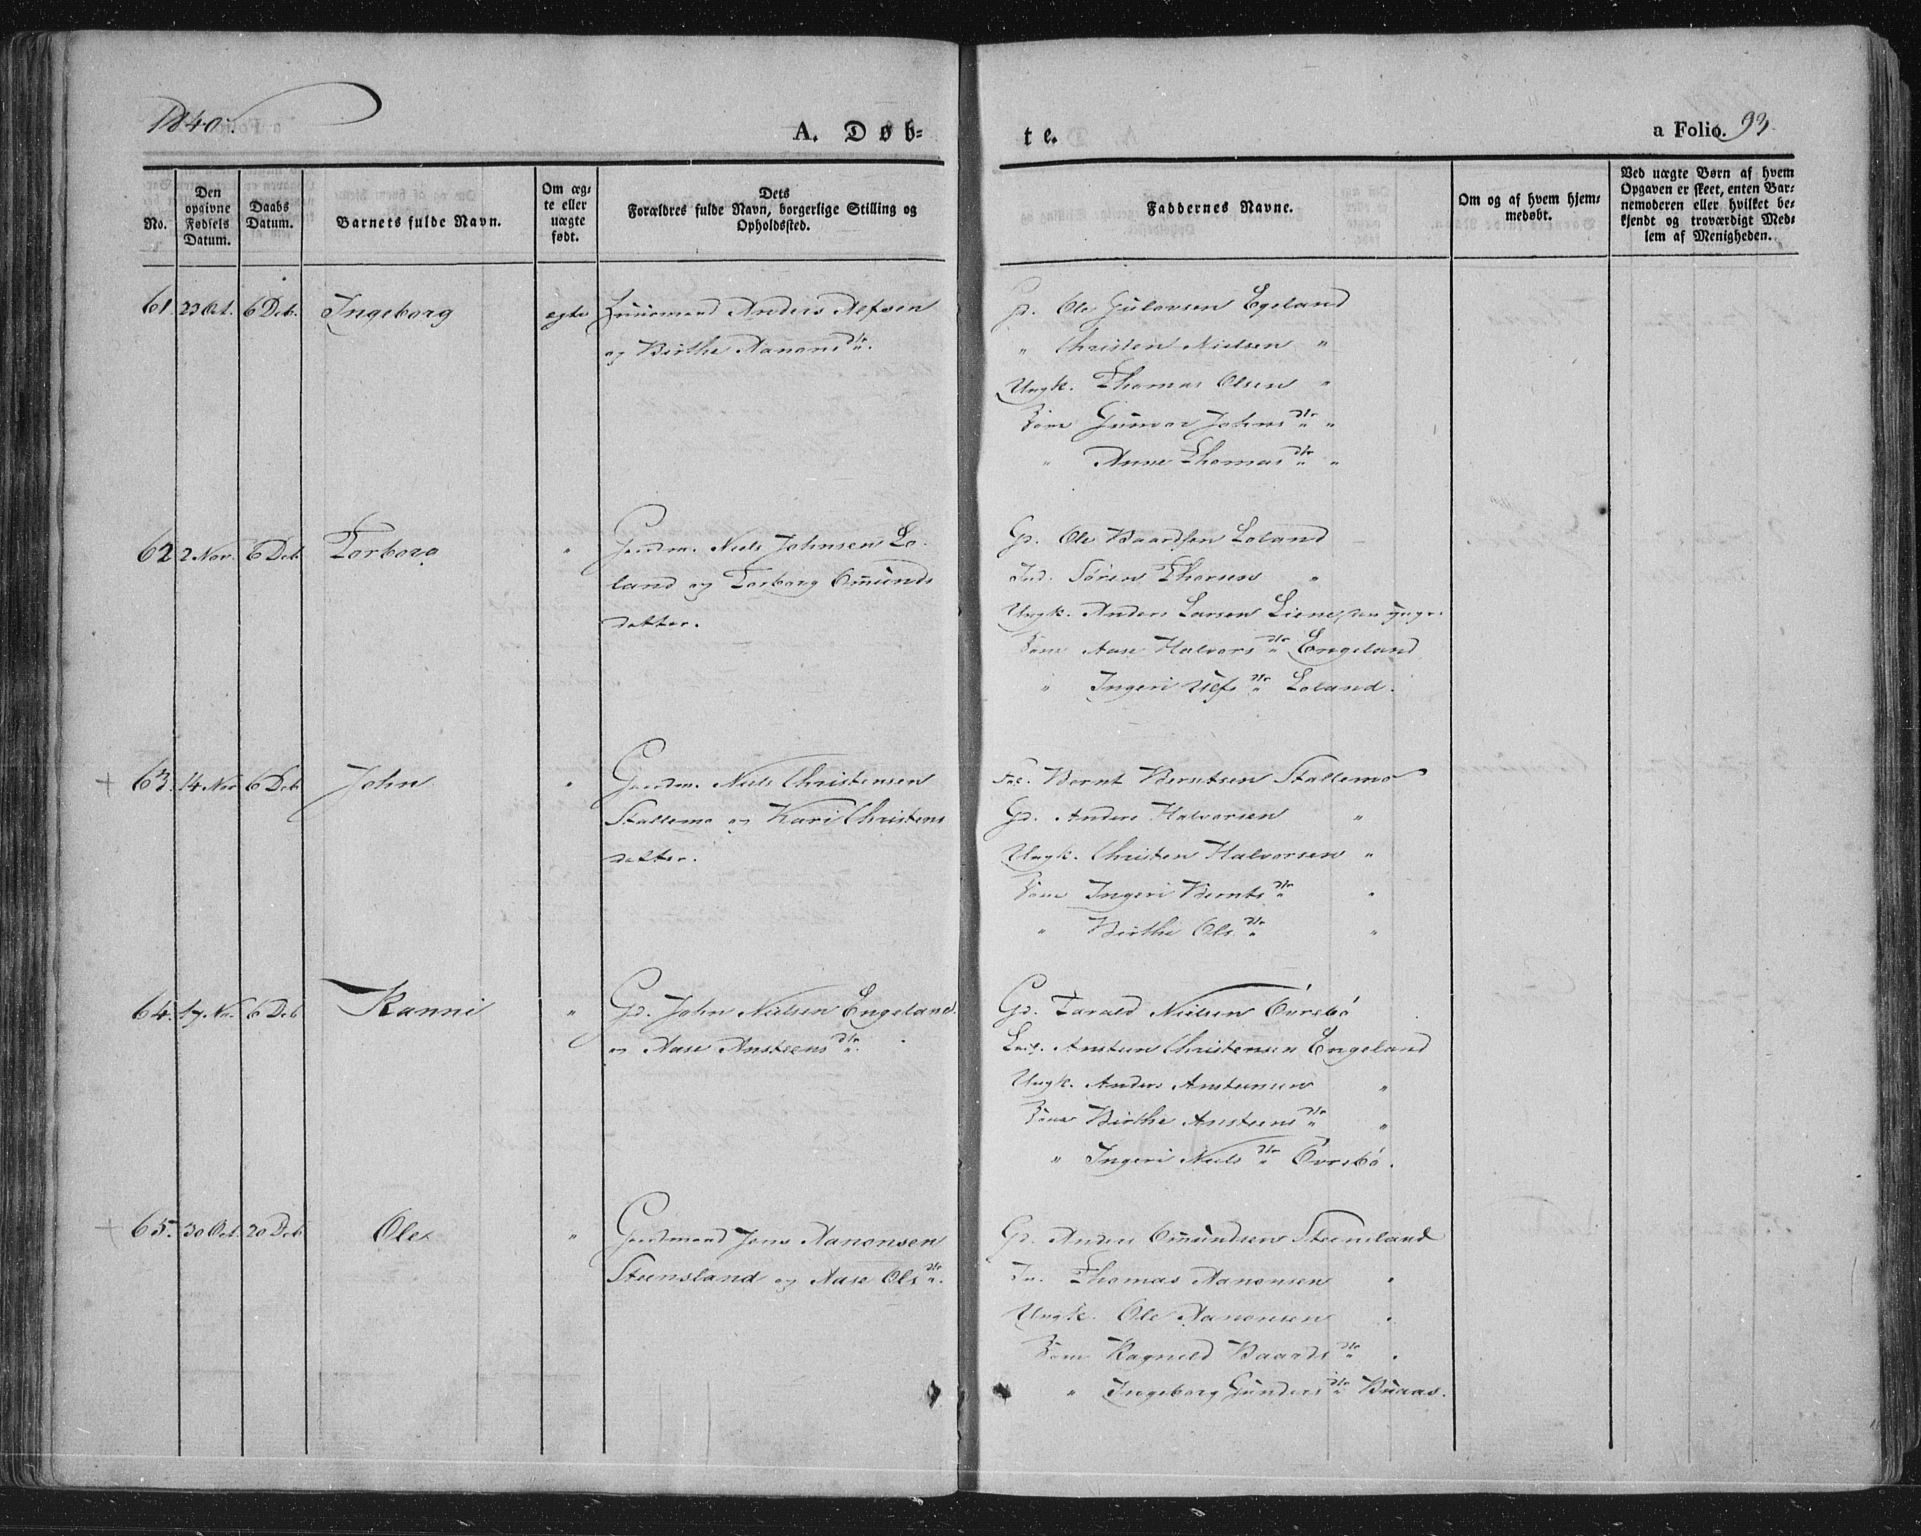 1840.
A. Døb=
te.
a Folio. 93.
No.
Den opgivne Fødsels Datum.
Daabs Datum.
Barnets fulde Navn.
Om ægte eller uægte født.
Dets Forældres fulde Navn, borgerlige Stilling og Opholdssted.
Faddernes Navne.
Om og af hvem hjemmedøbt.
Ved uægte Børn af hvem Opgaven er skeet, enten Barnemoderen eller hvilket bekjendt og troværdigt Medlem af Menigheden.
61. 23 Oct. 6 Deb. Ingeborg egte Huusmand Anders Alfsen
og Birthe Aanons dtr.
Gd. Ole Gulovsen Egeland
" Christen Nielsen "
Ungk. Thomas Olsen "
Gunvor Johns dtr "
" Anne Thomas dtr "
62 2 Nov. 6 Deb. Torborg " Gaardm. Niels Johnsen Lo-
land og Torborg Omunds
datter.
Gd. Ole Baardsen Loland
Ind. Sören Thorsen "
Ungk. Anders Larsen Liene,
Aase Halvors dtr Engeland
" Ingeri Ulfs dtr Loland.
+ 63. 14 Nov 6 Deb John " Gaardm. Niels Christensen
Stallemo og Kari Christens
datter.
Bernt Berntsen Stallemo
Gd. Anders Halvorsen "
Ungk. Christen Halvorsen "
Ingeri Bernts dtr "
" Birthe Ols dtr "
64. 17 Nov. 6 Deb Kanni " Gd. John Nielsen Engeland
og Aase Ansteens dtr.
Gd. Tarald Nielsen Övrebö
Ansteen Christensen Engeland
Ungk. Anders Ansteensen "
Birthe Ansteens dtr "
" Ingeri Niels dtr Övrebö.
+ 65. 30 Oct. 20 Deb Ole " Gaardmand Jens Aanonsen
Steensland og Aase Ols dtr.
Gd. Anders Omundsen Steensland
In. Thomas Aanonsen "
Ungk. Ole Aanonsen "
Ragnild Baards dtr "
" Ingeborg Gunders dtr Buaas.